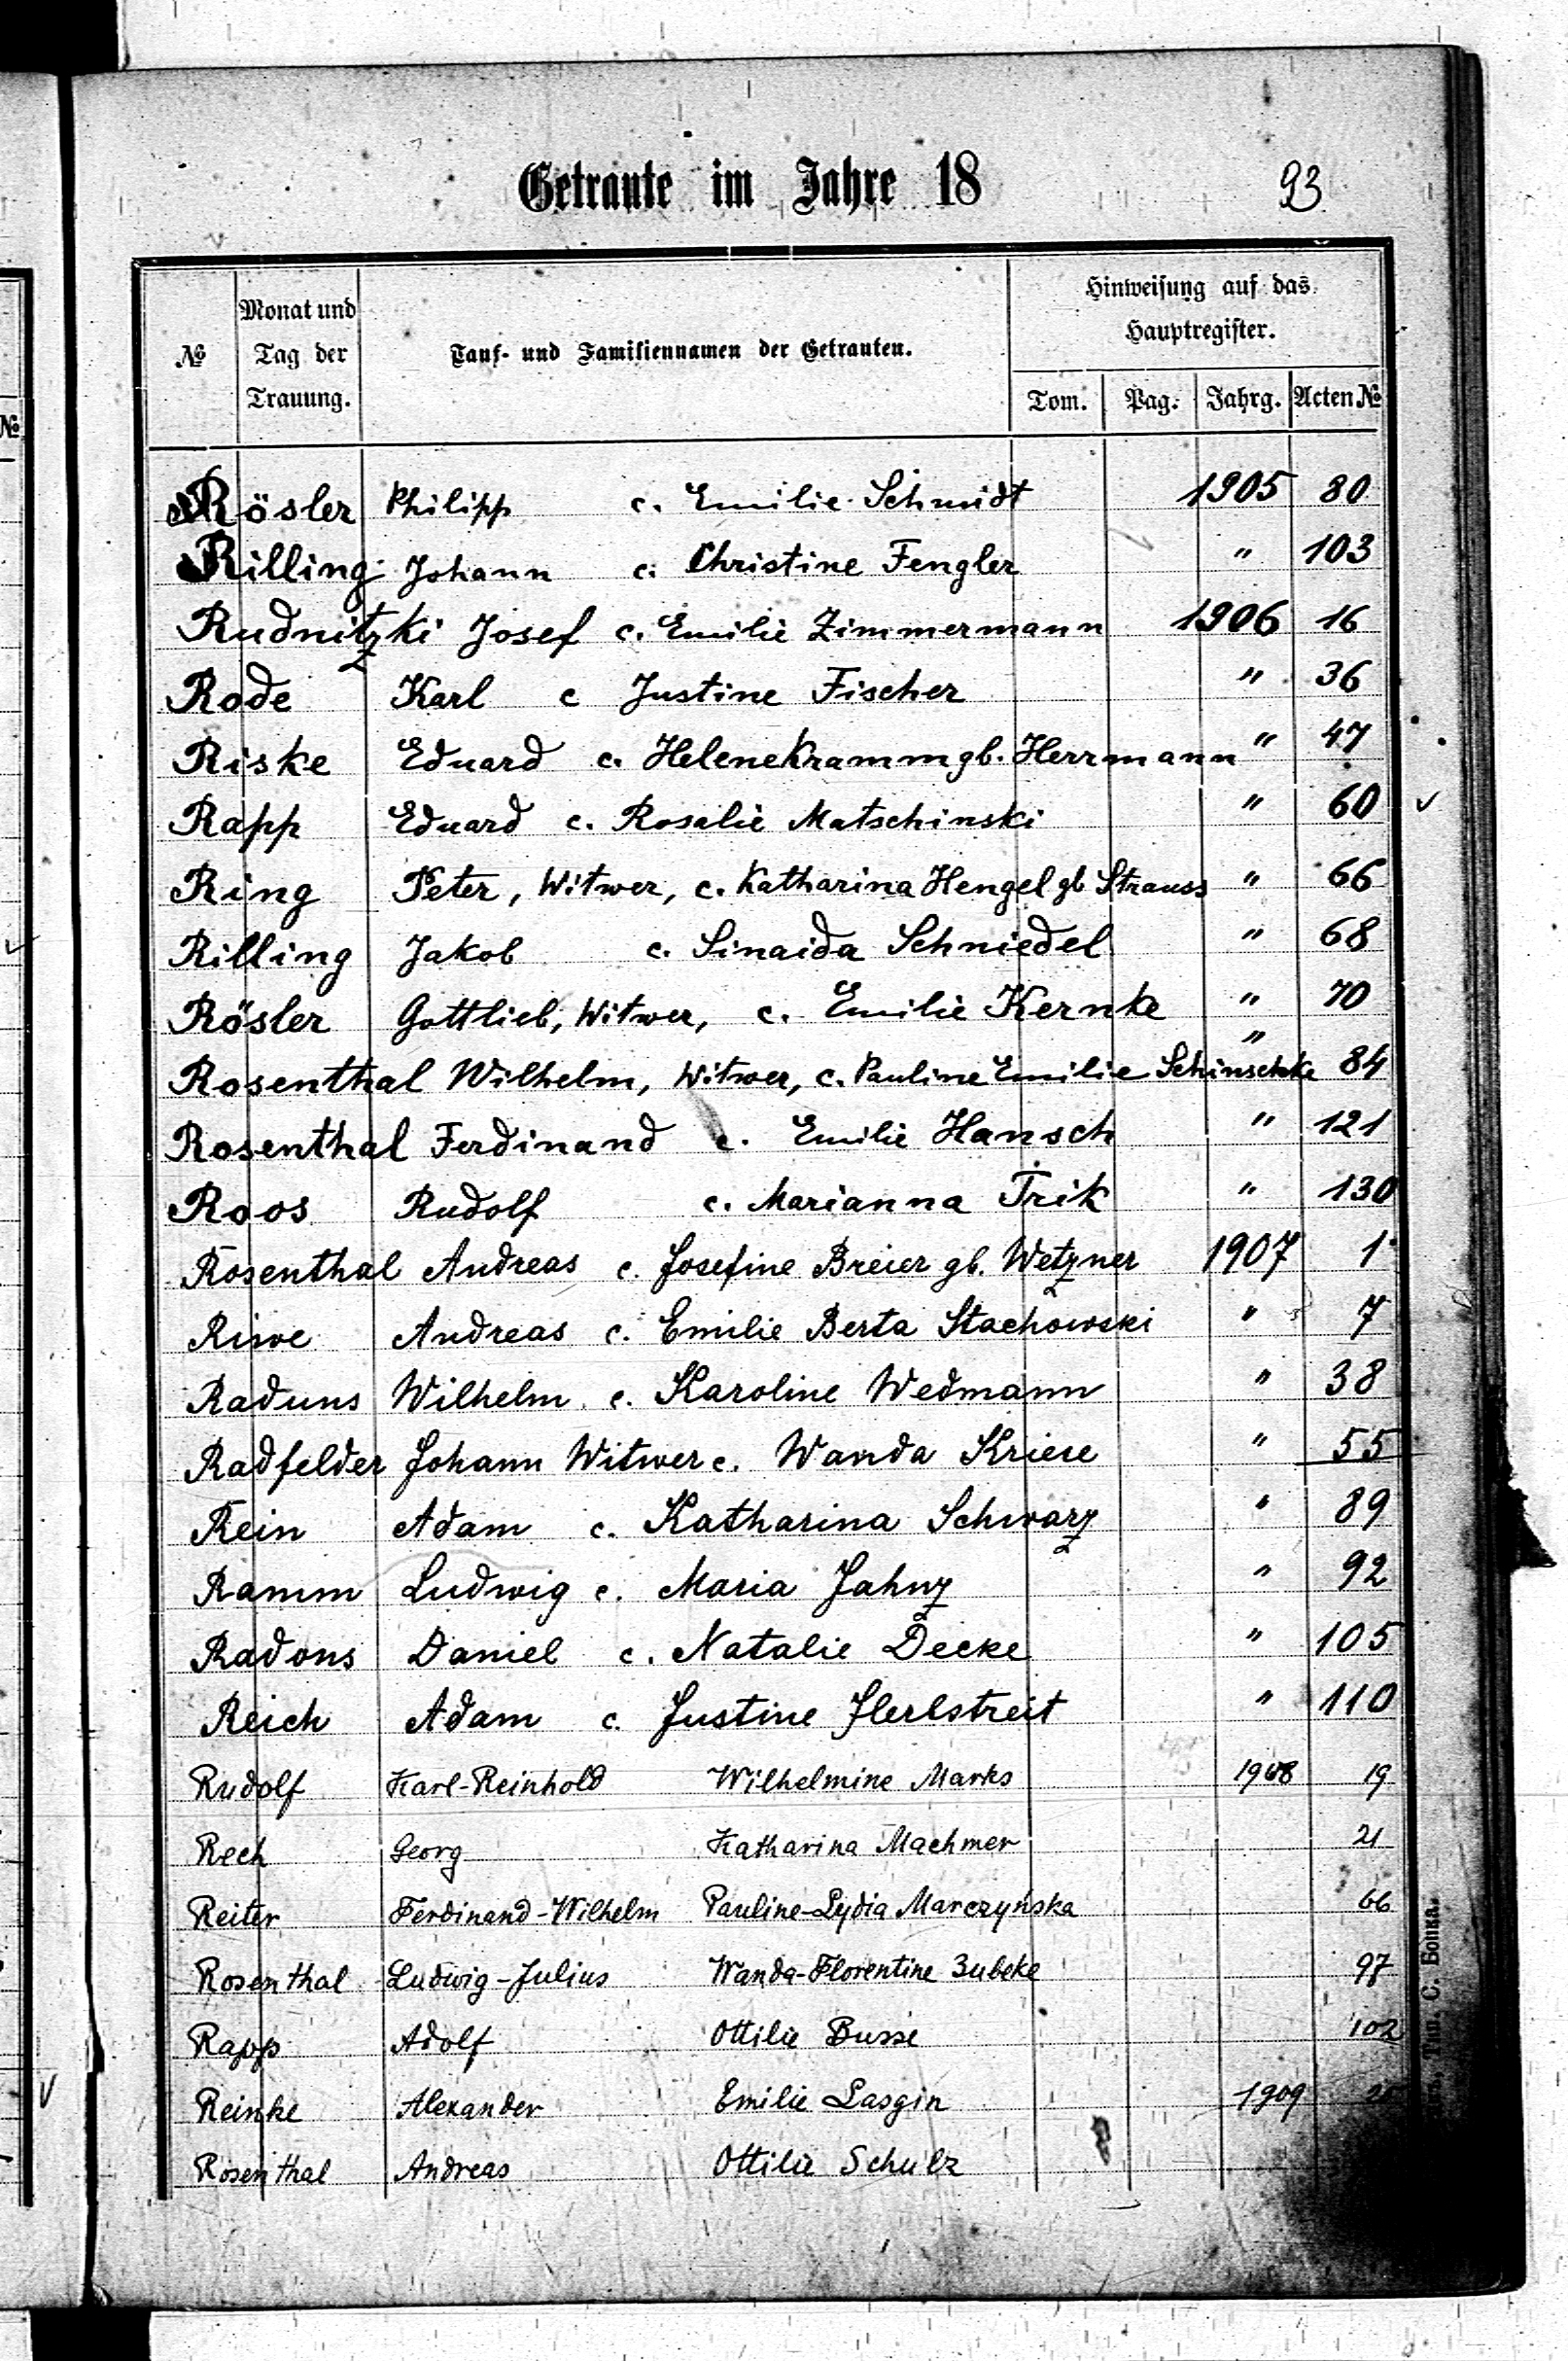 Getraute im Jahre 18
93
№
Monat und Tag der Trauung.
Tauf- und Familiennamen der Getrauten.
Hinweisung auf das Hauptregister.
Tom. Pag. Jahrg. Acten №
Rösler Philipp c. Emilie Schmidt 1905 80
Rilling Johann c. Christine Fengler " 103
Rudnitzki Josef c. Emilie Zimmermann 1906 16
Rode Karl c Justine Fischer " 36
Riske Eduard c. Helene Kramm gb. Herrmann " 47
Rapp Eduard c. Rosalie Matschinski " 60
Ring Peter, Witwer, c. Katharina Hengel gb Strauss " 66
Rilling Jakob c. Sinaida Schniedel " 68
Rösler Gottlieb, Witwer, c. Emilie Kernke " 70
Rosenthal Wilhelm, Witwer, c. Pauline Emilie Schinschke " 84
Rosenthal Ferdinand c. Emilie Hansch " 121
Roos Rudolf c. Marianna Trik " 130
Rosenthal Andreas c. Josefine Breier gb. Wetzner 1907 1
Riwe Andreas c. Emilie Berta Stachowski " 7
Raduns Wilhelm c. Karoline Wedmann " 38
Radfelder Johann Witwer c. Wanda Kriese " 55
Rein Adam c. Katharina Schwarz " 89
Ramm Ludwig c. Maria Jahnz " 92
Radons Daniel c. Natalie Decke " 105
Reich Adam c. Justine Herbstreit " 110
Rudolf Karl-Reinhold Wilhelmine Marks 1908 19
Rech Georg Katharina Machmer 21
Reiter Ferdinand-Wilhelm Pauline-Lydia Marczyńska 66
Rosenthal Ludwig-Julius Wanda-Florentine Zubeke 97
Rapp Adolf Ottilie Busse 102
Reinke Alexander Emilie Lasgin 1909
Rosenthal Andreas Ottilie Schulz